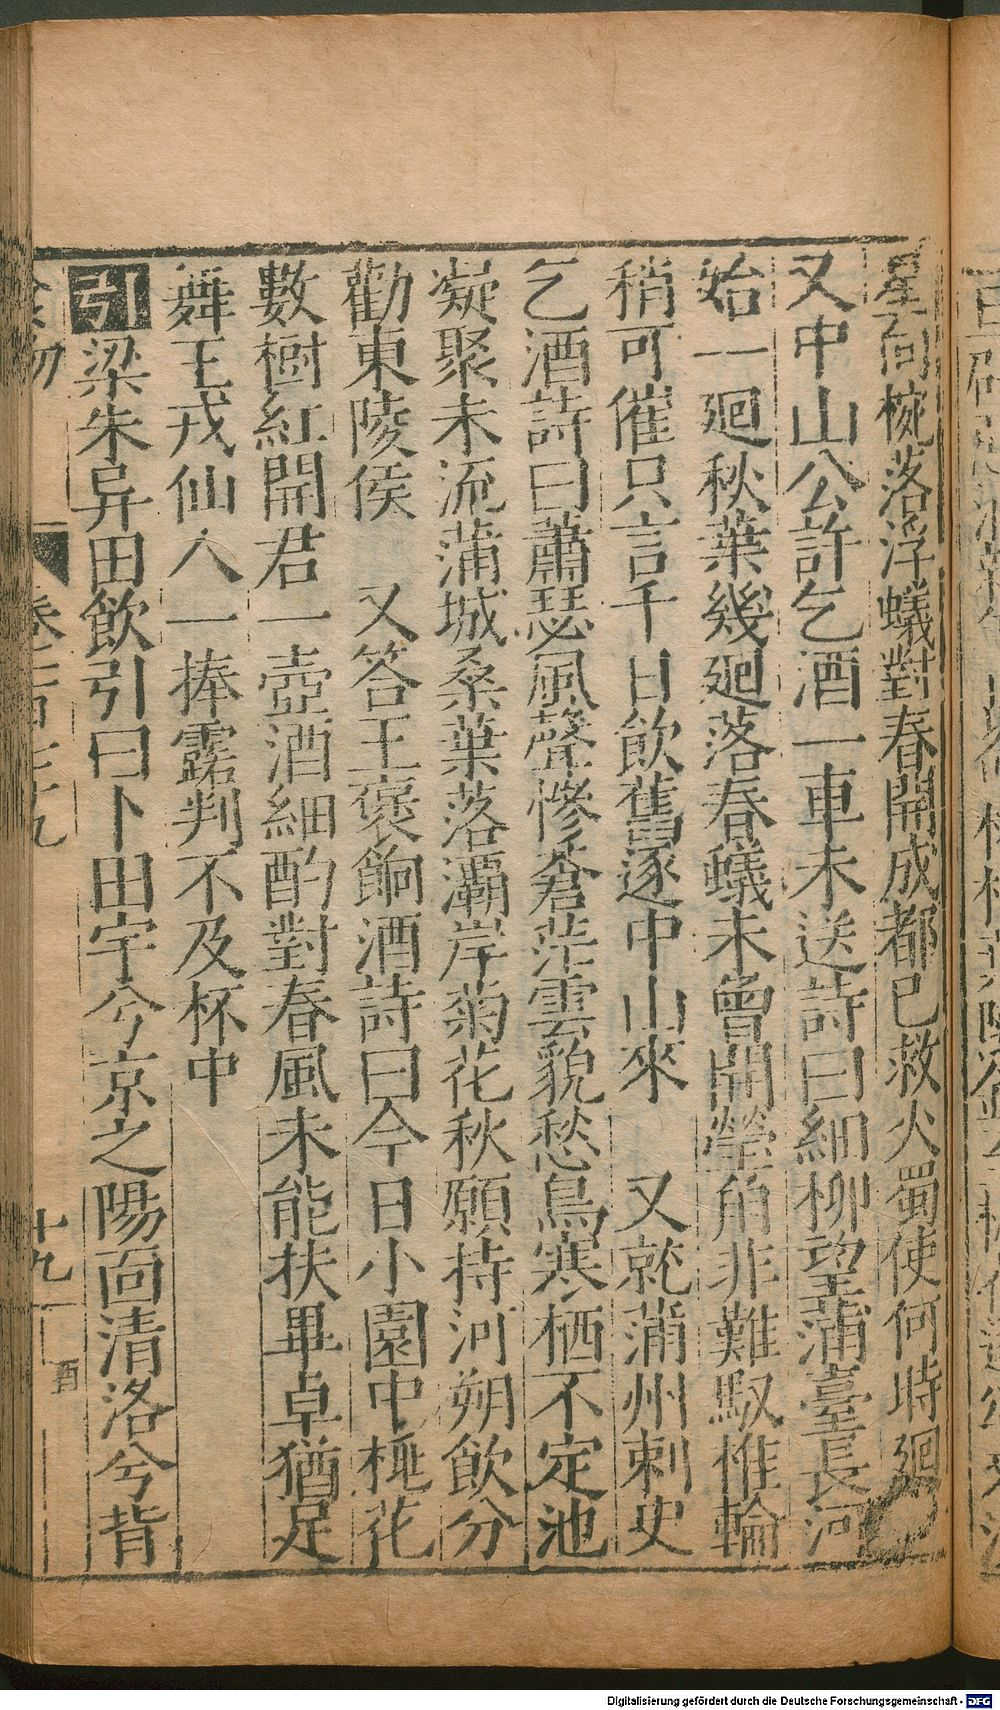 星向椀落浮蟻對春開成都已救火蜀使何時廻
又中山公許乞酒一車未送詩曰細柳望蒲臺長河
始一廻秋葉幾廻落春蟻未曾開螢角非難馭椎輪
稍可催只言千日飲舊逐中山來 又就蒲州刺史
乞酒詩曰蕭瑟風聲慘蒼茫雲貌愁鳥寒栖不定池
凝聚未流蒲城桑葉落灞岸菊花秋願持河朔飲分
勸東陵侯 又答王褒餉酒詩曰今日小園中桃花
數樹紅開君一壺酒細酌對春風未能扶畢卓猶足
舞王戎仙人一捧露判不及杯中
引梁朱异田飲引曰卜田宇兮京之陽面清洛兮背
十九 酒
Digitalisierung gefördert durch die Deutsche Forschungsgemeinschaft - DFG